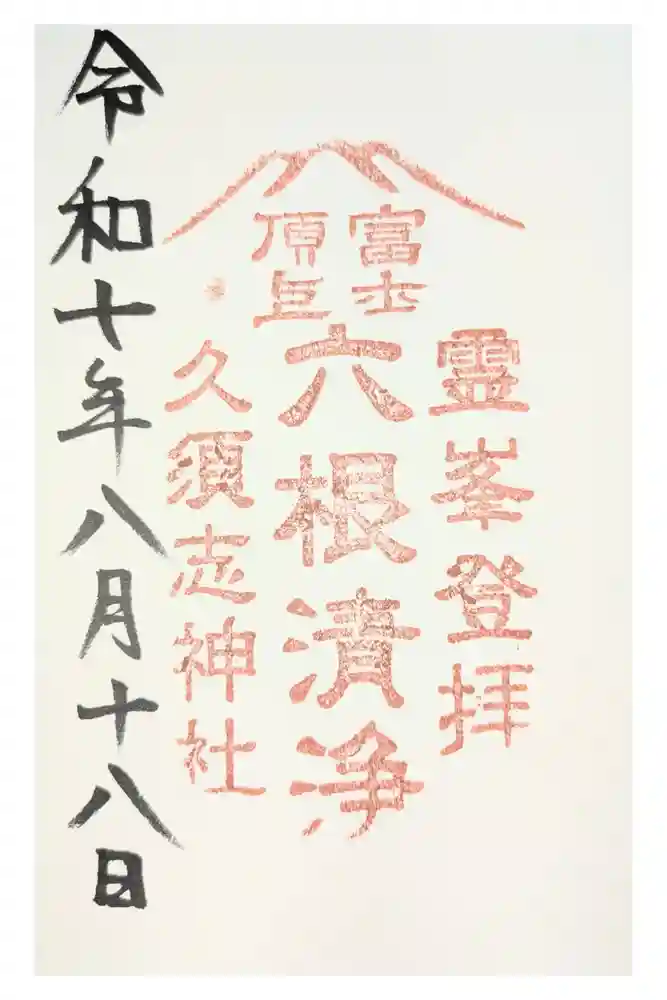 霊峯登拝
富士
頂上
六根清浄
久須志神社
令和十年八月十八日